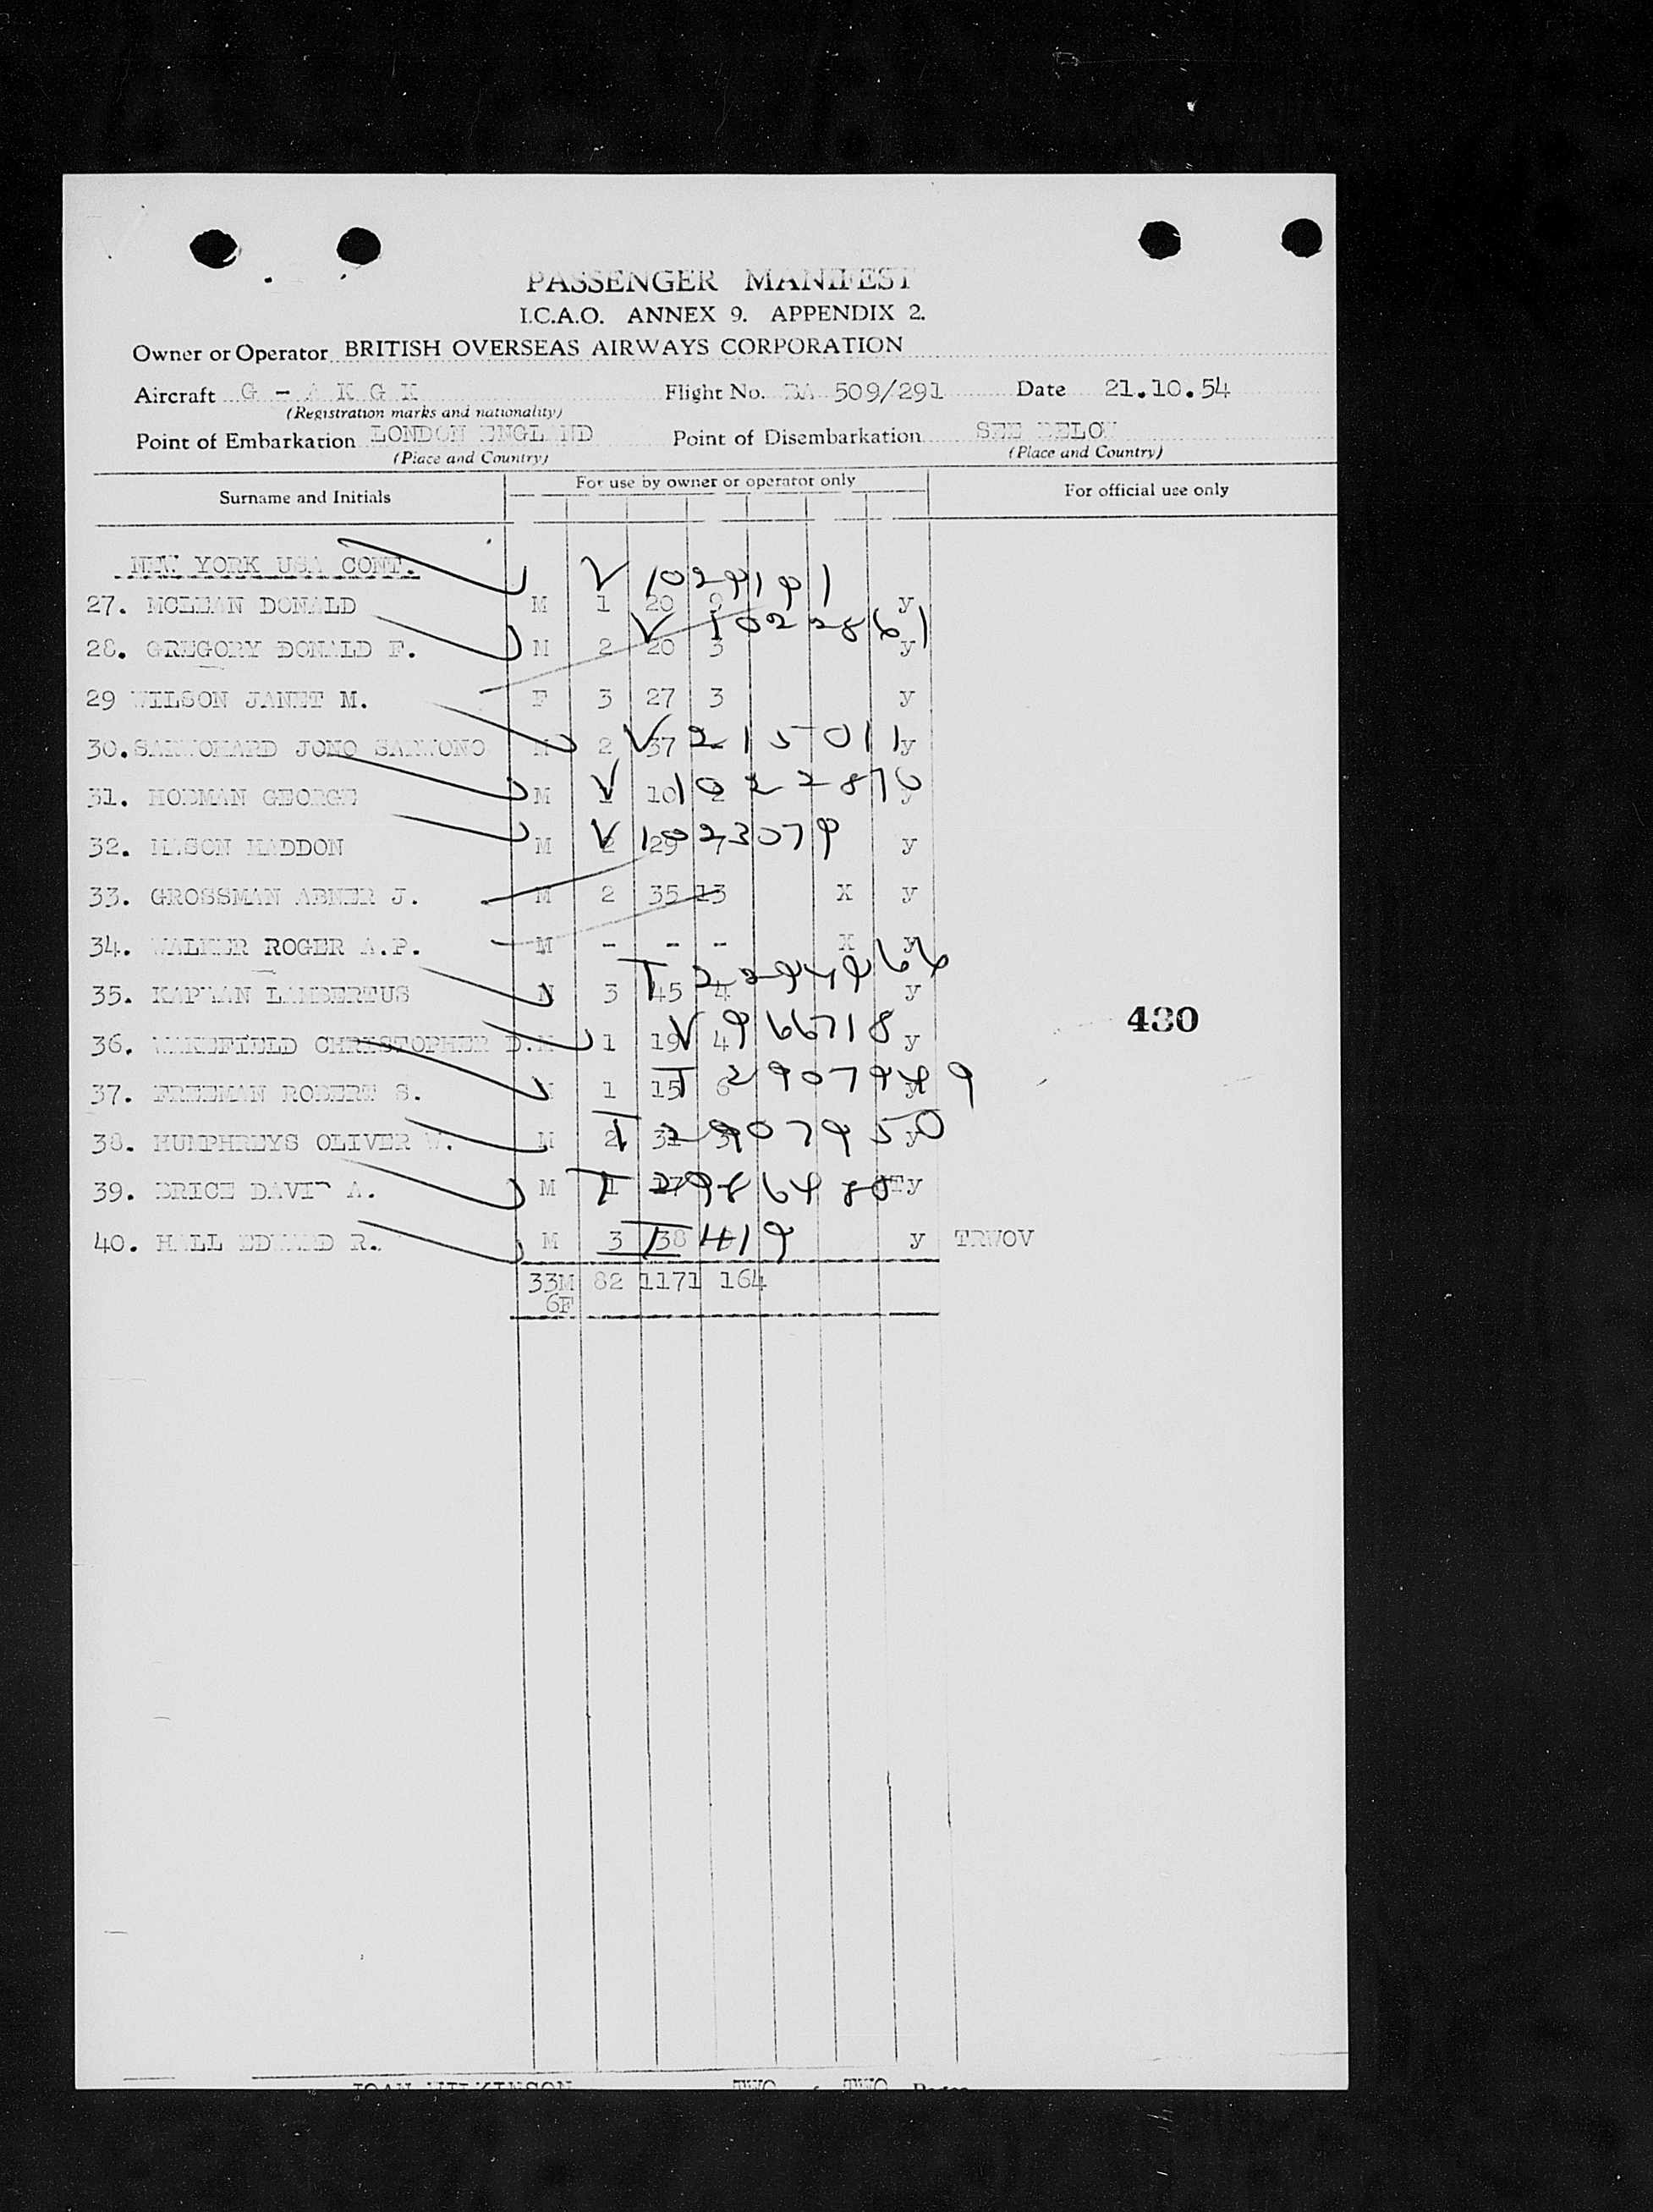 PASSENGER MANIFEST
I.C.A.O. ANNEX 9. APPENDIX 2.
Owner or Operator BRITISH OVERSEAS AIRWAYS CORPORATION
Aircraft G - A K G K Flight No. BA 509/291 Date 21.10.54
(Registration marks and nationality)
Point of Embarkation LONDON ENGLAND Point of Disembarkation SEE BELOW
(Place and Country) (Place and Country)
Surname and Initials For use by owner or operator only For official use only
NEW YORK USA CONT.
V
27. MCLEAN DONALD M 1 20 9 y
V 1022861
28. GREGORY DONALD F. M 2 20 3 y
29 WILSON JANET M. F 3 27 3 y
30. JONO SARWONO M 2 37 y V 215011
31. GEORGE M 1 10 V 1022876
32. MASON HADDON M 2 29 7 y V 1023079
33. GROSSMAN ABNER J. M 2 35 13 X y
34. WALKER ROGER A.P. M - - - X y
35. LAMBERTUS M 3 45 4 y
36. WAKEFIELD CHRISTOPHER D. M 1 19 4 y V 966718
430
37. FREEMAN ROBERT S. M 1 15 6 y
38. HUMPHREYS OLIVER W. M 2 31 y T 2907950
39. BRICE DAVID A. M 1 17 y
40. HALL EDWARD R. M 3 38 y TRWOV T 419
33M 82 1171 164
6F
JOAN WILKINSON TWO TWO Pages